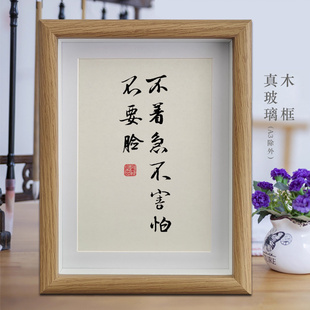 不着急不害怕
不要脸
木框
真玻璃
(A3除外)